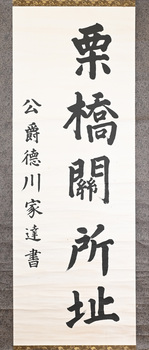 栗橋關所址
公爵德川家達書